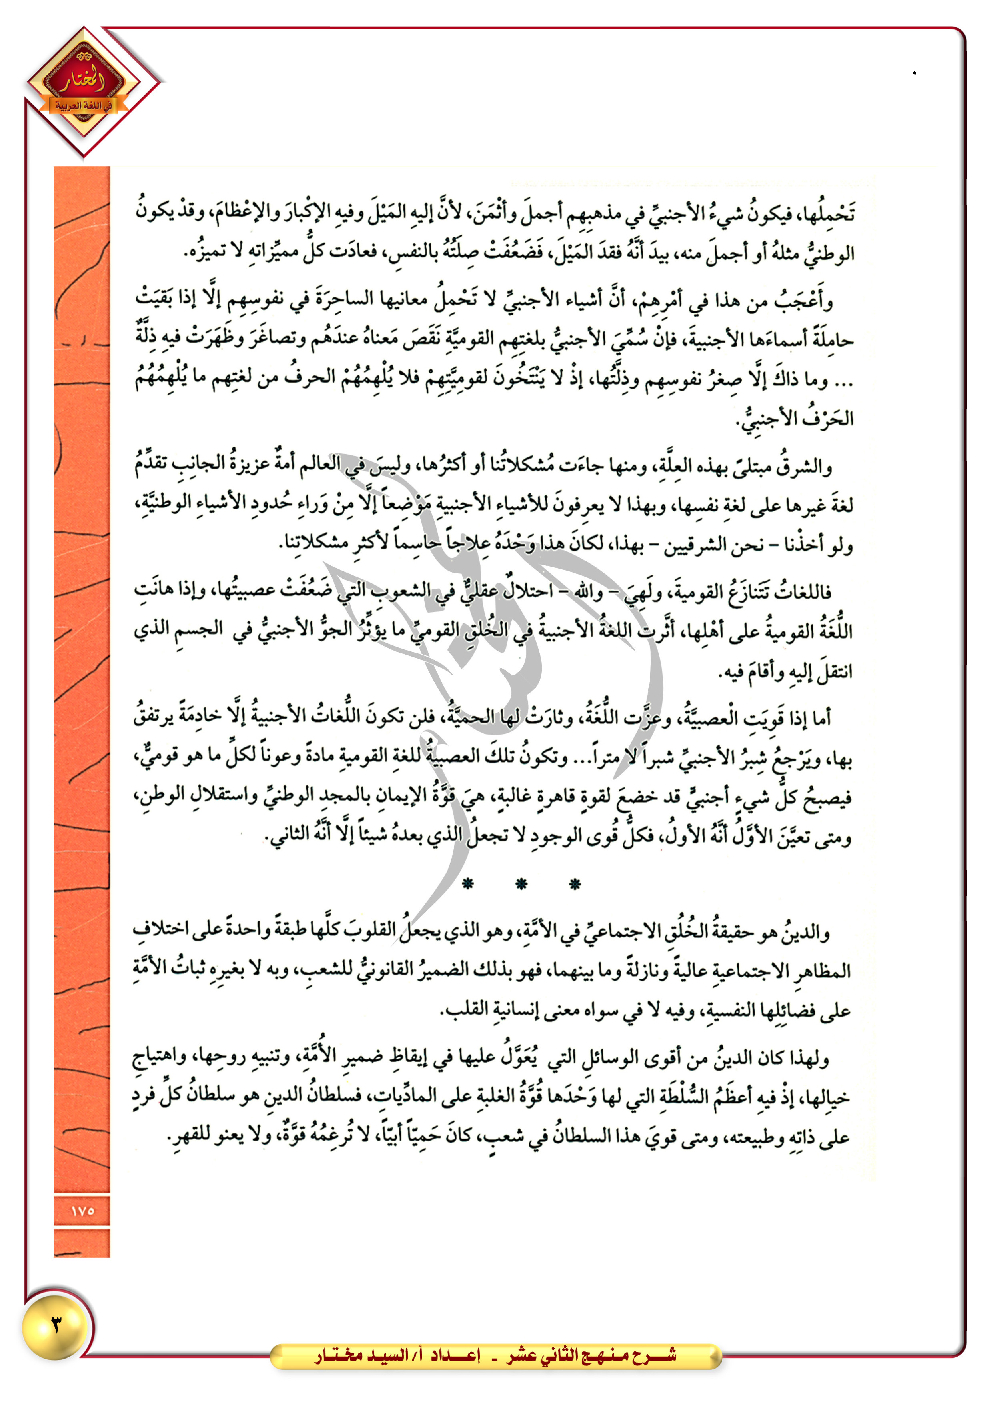 المختار
في اللغة العربية
تَحْمِلُها، فيكونُ شيءُ الأجنبيِّ في مذهبِهِم أجملَ وأثْمَنَ، لأنَّ إليهِ المَيْلَ وفيهِ الإكْبارَ والإعْظامَ، وقدْ يكونُ
الوطنيُّ مثلهُ أو أجملَ منه، بيدَ أنَّهُ فقدَ المَيْلَ، فَضَعُفَتْ صِلَتُهُ بالنفسِ، فعادَت كلُّ مميِّزاتهِ لا تميزُه.
وأَعْجَبُ من هذا في أمْرِهِمْ، أنَّ أشياء الأجنبيِّ لا تَحْمِلُ معانيها الساحِرَةَ في نفوسِهِم إلَّا إذا بَقيَتْ
حامِلَةً أسماءَها الأجنبيةَ، فإنْ سُمِّيَ الأجنبيُّ بلغتِهِم القوميَّةِ نَقَصَ مَعناهُ عندَهُم وتصاغَرَ وظَهَرَتْ فيهِ ذِلَّةٌ
... وما ذاكَ إلَّا صِغرُ نفوسِهِم وذِلَّتُها، إذْ لا يَنْتَخُونَ لقوميَّتِهِمْ فلا يُلْهِمُهُمْ الحرفُ من لغتِهم ما يُلْهِمُهُمُ
الحَرْفُ الأجنبيُّ.
والشرقُ مبتلىً بهذه العِلَّةِ، ومنها جاءَت مُشكلاتُنا أو أكثرُها، وليسَ في العالم أمةٌ عزيزةُ الجانِبِ تقدِّمُ
لغةَ غيرها على لغةِ نفسِها، وبهذا لا يعرِفونَ للأشياءِ الأجنبيةِ مَوْضِعاً إلَّا مِنْ وَراءِ حُدودِ الأشياءِ الوطنيَّةِ،
ولو أخذْنا – نحن الشرقيين – بهذا، لكانَ هذا وَحْدَهُ عِلاجاً حاسِماً لأكثرِ مشكلاتِنا.
فاللغاتُ تَتَنازَعُ القوميةَ، ولَهِيَ – والله – احتلالٌ عقليٌّ في الشعوبِ التي ضَعُفَتْ عصبيتُها، وإذا هانَتِ
اللُّغَةُ القوميةُ على أهْلِها، أثَّرت اللغةُ الأجنبيةُ في الخُلقِ القوميِّ ما يؤثِّرُ الجوُّ الأجنبيُّ في الجسمِ الذي
انتقلَ إليهِ وأقامَ فيه.
أما إذا قَوِيَتِ الْعصبيَّةُ، وعزَّت اللُّغَةُ، وثارَتْ لها الحميَّةُ، فلن تكونَ اللُّغاتُ الأجنبيةُ إلَّا خادِمَةً يرتفقُ
بها، ويَرْجعُ شِبرُ الأجنبيِّ شبراً لا متراً... وتكونُ تلكَ العصبيةُ للغةِ القوميةِ مادةً وعوناً لكلِّ ما هو قوميٌّ،
فيصبحُ كلُّ شيءٍ أجنبيٍّ قد خضعَ لقوةٍ قاهرةٍ غالبةٍ، هيَ قوَّةُ الإيمانِ بالمجدِ الوطنيِّ واستقلالِ الوطنِ،
ومتى تعيَّنَ الأوَّلُ أنَّهُ الأولُ، فكلُّ قوى الوجودِ لا تجعلُ الذي بعدهُ شيئاً إلَّا أنَّهُ الثاني.
* * *
والدينُ هو حقيقةُ الخُلُقِ الاجتماعيِّ في الأمَّةِ، وهو الذي يجعلُ القلوبَ كلَّها طبقةً واحدةً على اختلافِ
المظاهرِ الاجتماعيةِ عاليةً ونازلةً وما بينهما، فهو بذلك الضميرُ القانونيُّ للشعبِ، وبه لا بغيرِهِ ثباتُ الأمَّةِ
على فضائِلِها النفسيةِ، وفيه لا في سواه معنى إنسانيةِ القلب.
ولهذا كان الدينُ من أقوى الوسائلِ التي يُعَوَّلُ عليها في إيقاظِ ضميرِ الأُمَّةِ، وتنبيهِ روحِها، واهتياجِ
خيالِها، إذْ فيهِ أعظَمُ السُّلْطَةِ التي لها وَحْدَها قُوَّةُ الغلبةِ على المادِّياتِ، فسلطانُ الدينِ هو سلطانُ كلِّ فردٍ
على ذاتِهِ وطبيعته، ومتى قويَ هذا السلطانُ في شعبٍ، كانَ حَمِيّاً أبيّاً، لا تُرغِمُهُ قوَّةٌ، ولا يعنو للقهرِ.
١٧٥
٣
شرح منهج الثاني عشر - إعداد أ/ السيد مختار